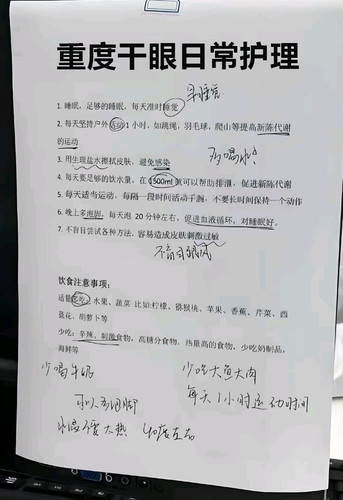 重度干眼日常护理
早睡觉
1. 睡眠，足够的睡眠，每天准时睡觉
2. 每天坚持户外活动1小时，如跳绳，羽毛球，爬山等提高新陈代谢
的运动
多喝水
3. 用生理盐水擦拭皮肤，避免感染
4. 每天要足够的饮水量，在1500ml就可以帮助排泄，促进新陈代谢
5. 每天适当运动，每隔一段时间活动手腕，不要长时间保持一个动作
6. 晚上多泡脚，每天泡20分钟左右，促进血液循环，对睡眠好。
7. 不盲目尝试各种方法，容易造成皮肤刺激过敏
不盲目跟风
饮食注意事项：
适量吃吃，水果、蔬菜 比如:柠檬、猕猴桃、苹果、香蕉、芹菜、西
蓝花、胡萝卜等
少吃：辛辣、刺激食物，高糖分食物，热量高的食物，少吃奶制品，
海鲜等
少喝牛奶
少吃大鱼大肉
可以多泡脚
每天1小时运动时间
水温不要太热 40度左右